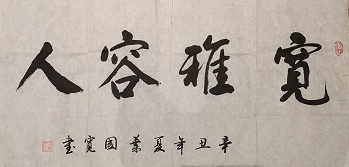 寬雅容人
辛丑年夏葉國寬書